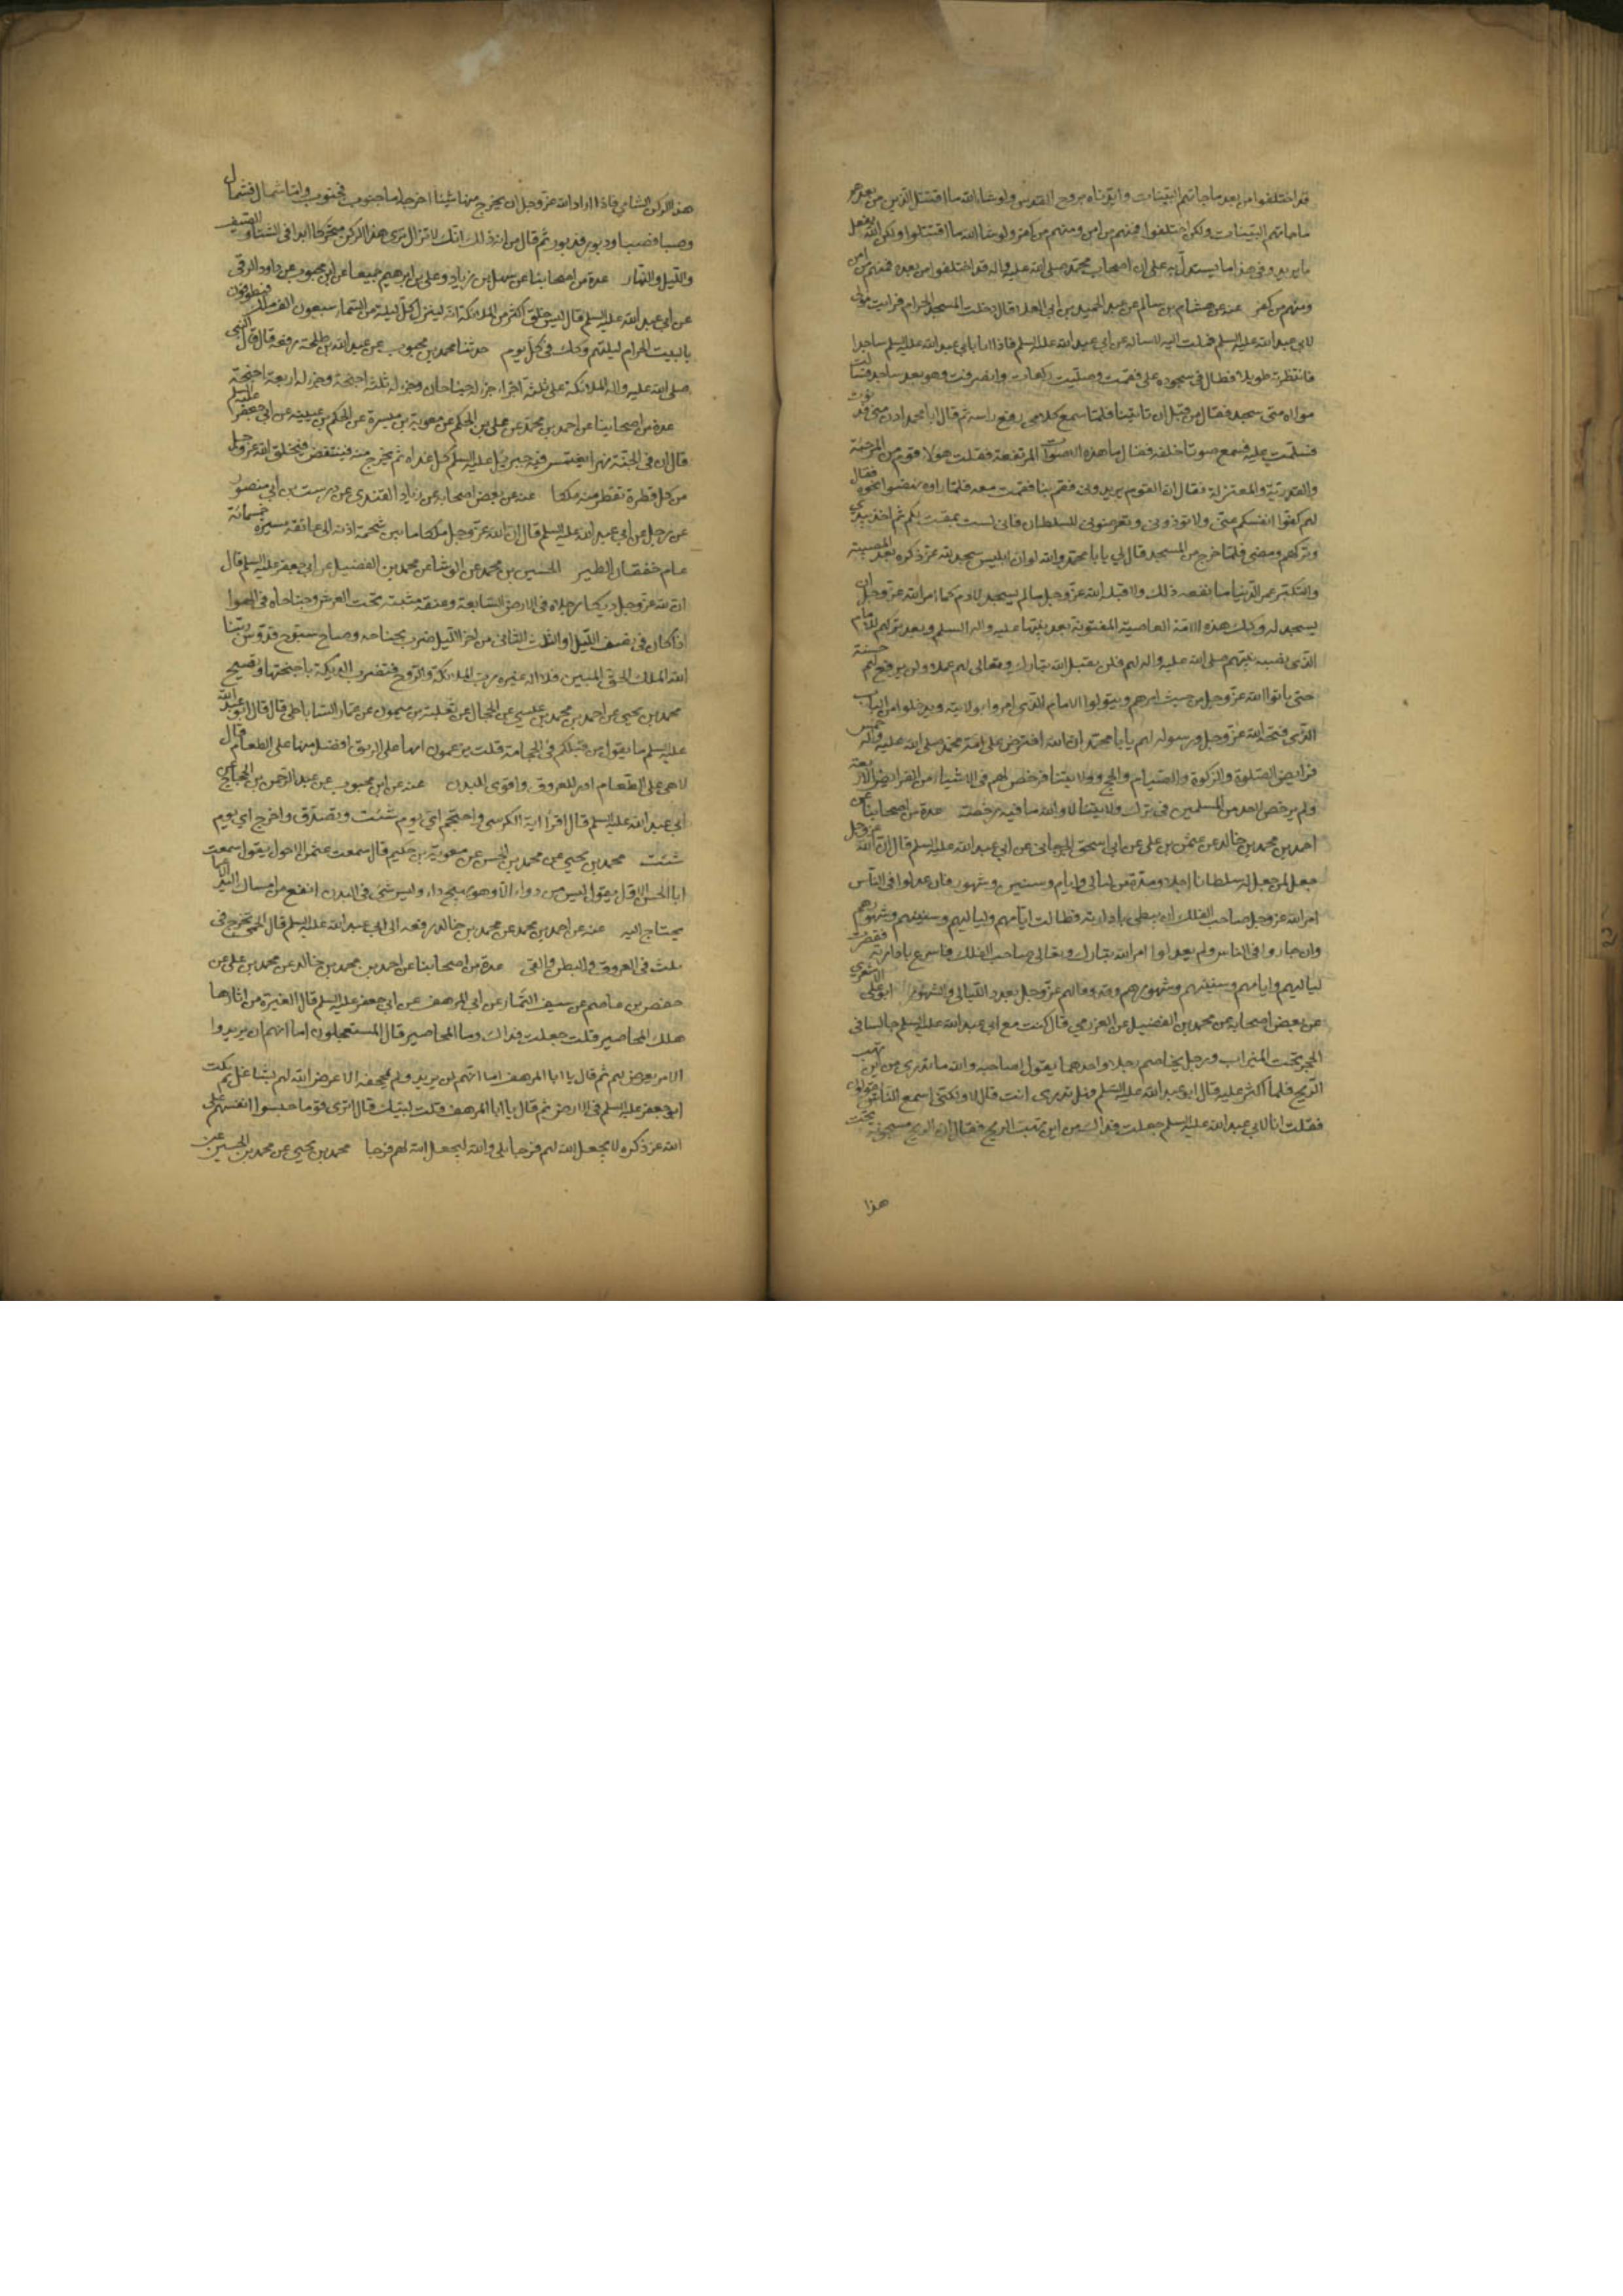 قد اختلفوا من بعد ما جاءتهم البينات وايدناه بروح القدس ولو شاء الله ما اقتتل الذين من بعدهم
ما جاءتهم البينات ولكن اختلفوا فمنهم من امن ومنهم من كفر ولو شاء الله ما اقتتلوا ولكن الله يفعل
ما يريد وفي هذا ما يستدل به على ان اصحاب محمد صلى الله عليه واله قد اختلفوا من بعده فمنهم من امن
ومنهم من كفر عنه عن هشام بن سالم عن عبد الحميد بن ابي العلا قال دخلت المسجد الحرام فرايت مولى
لابي عبد الله عليه السلم فملت اليه لاساله عن ابي عبد الله عليه السلم فاذا انا بابي عبد الله عليه السلم ساجدا
فانتظرته طويلا فطال في سجوده على فقمت وصليت ركعات وانصرفت وهو بعد ساجد فسالت
مولاه متى سجد فقال من قبل ان تاتينا فلما سمع كلامي رفع راسه ثم قال ابا محمد ادن مني فدنوت
فسلمت عليه فسمع صوتا خلفه فقال ما هذه الاصوات المرتفعة فقلت هؤلاء قوم من المرجئة
والقدرية والمعتزلة فقال ان القوم يريدوني فقم بنا فقمت معه فلما راوه نهضوا نحوه فقال
لهم كفوا انفسكم عني ولا توذوني وتعرضوني للسلطان فاني لست بمفت لكم ثم اخذ بيدي
وتركهم ومضى فلما خرج من المسجد قال لي يا ابا محمد والله لو ان ابليس سجد لله عز ذكره بعد المعصية
والتكبر عمر الدنيا ما نفعه ذلك ولا قبله الله عز وجل ما لم يسجد لادم كما امر الله عز وجل ان
يسجد له وكذلك هذه الامة العاصية المفتونة بعد نبيها عليه واله السلم وبعد تركهم الامام
الذي نصبه نبيهم صلى الله عليه واله لهم فلن يقبل الله تبارك وتعالى لهم عملا ولن يرفع لهم حسنة
حتى ياتوا الله عز وجل من حيث امرهم ويتولوا الامام الذي امروا بولايته ويدخلوا من الباب
الذي فتحه الله عز وجل ورسوله لهم يا ابا محمد ان الله افترض على امة محمد صلى الله عليه واله خمس
فرايض الصلوة والزكوة والصيام والحج وولايتنا فرخص لهم في اشياء من الفرايض الاربعة
ولم يرخص لاحد من المسلمين في ترك ولايتنا لا والله ما فيه رخصة عدة من اصحابنا عن
احمد بن محمد بن خالد عن عثمن بن علي عن ابي اسحق الجرجاني عن ابي عبد الله عليه السلم قال ان الله عز وجل
جعل لمن جعل له سلطانا اجلا ومدة من ليالي وايام وسنين وشهور فان عدلوا في الناس
امر الله عز وجل صاحب الفلك ان يبطي بادارته فطالت ايامهم ولياليهم وسنينهم وشهورهم
وان جاروا في الناس ولم يعدلوا امر الله تبارك وتعالى صاحب الفلك فاسرع بادارته فقصرت
لياليهم وايامهم وسنينهم وشهورهم وقد وفا لهم عز وجل بعدد الليالي والشهور ابو علي الاشعري
عن بعض اصحابه عن محمد بن الفضيل عن العرزمي قال كنت مع ابي عبد الله عليه السلم جالسا في
الحجر تحت الميزاب ورجل يخاصم رجلا واحدهما يقول لصاحبه والله ما تدري من اين تهب
الريح فلما اكثر عليه قال ابو عبد الله عليه السلم فهل تدري انت قال لا ولكني اسمع الناس يقولون
فقلت انا لابي عبد الله عليه السلم جعلت فداك من اين تهب الريح فقال ان الريح مسجونة تحت
هذا
هذا الركن الشامي فاذا اراد الله عز وجل ان يخرج منها شيئا اخرجه اما جنوب فجنوب واما شمال فشمال
وصبا فصبا ودبور فدبور ثم قال من اية ذلك انك لا تزال ترى هذا الركن متحركا ابدا في الشتا والصيف
والليل والنهار عدة من اصحابنا عن سهل بن زياد وعلي بن ابرهيم جميعا عن ابن محبوب عن داود الرقي
عن ابي عبد الله عليه السلم قال ليس خلق اكثر من الملائكة انه لينزل كل ليلة من السماء سبعون الف ملك فيطوفون
بالبيت الحرام ليلتهم وكذلك في كل يوم حدثنا محمد بن محبوب عن عبد الله بن طلحة رفعه قال قال النبي
صلى الله عليه واله الملائكة على ثلثة اجزاء جزء له جناحان وجزء له ثلثة اجنحة وجزء له اربعة اجنحة
عدة من اصحابنا عن احمد بن محمد عن علي بن الحكم عن معوية بن ميسرة عن الحكم بن عيينه عن ابي جعفر عليه السلم
قال ان في الجنة نهرا يغتمس فيه جبرئيل عليه السلم كل غداة ثم يخرج منه فينتفض فيخلق الله عز وجل
من كل قطرة تقطر منه ملكا عنه عن بعض اصحابه عن زياد القندي عن درست بن ابي منصور
عن رجل عن ابي عبد الله عليه السلم قال ان لله عز وجل ملكا ما بين شحمة اذنه الى عاتقه مسيرة خمسمائة
عام خفقان الطير الحسين بن محمد عن الوشا عن محمد بن الفضيل عن ابي جعفر عليه السلم قال
ان لله عز وجل ديكا رجلاه في الارض السابعة وعنقه مثبتة تحت العرش وجناحاه في الهوا
اذا كان في نصف الليل او الثلث الثاني من اخر الليل ضرب بجناحه وصاح سبوح قدوس ربنا
الله الملك الحق المبين فلا اله غيره رب الملائكة والروح فتضرب الديكة باجنحتها وتصيح
محمد بن يحيى عن احمد بن محمد بن عيسى عن الحجال عن ثعلبة بن ميمون عن عمار الساباطي قال قال ابو عبد الله
عليه السلم ما يقول من قبلكم في الحجامة قلت يزعمون انها على الريق افضل منها على الطعام قال
لا هي على الطعام ادر للعروق واقوى للبدن عنه عن ابن محبوب عن عبد الرحمن بن الحجاج عن
ابي عبد الله عليه السلم قال اقرا اية الكرسي واحتجم اي يوم شئت وتصدق واخرج اي يوم
شئت محمد بن يحيى عن محمد بن الحسن عن معوية بن حكيم قال سمعت عثمن الاحول يقول سمعت
ابا الحسن الاول يقول ليس من دواء الا وهو يهيج داء وليس شيء في البدن انفع من امساك اليد الا عما
يحتاج اليه عنه عن احمد بن محمد عن محمد بن خالد رفعه الى ابي عبد الله عليه السلم قال الحمى تخرج في
ثلث في العروق والبطن والقي عدة من اصحابنا عن احمد بن محمد بن خالد عن محمد بن علي عن
حفص بن عاصم عن سيف التمار عن ابي المرهف عن ابي جعفر عليه السلم قال الغبرة من اثارها
هلك المحاصير قلت جعلت فداك وما المحاصير قال المستعجلون اما انهم لن يريدوا
الا من يعرض لهم ثم قال يا ابا المرهف اما انهم لن يريدوكم بمجحفة الا عرض الله لهم بشاغل ثم نكت
ابو جعفر عليه السلم في الارض ثم قال يا ابا المرهف قلت لبيك قال اترى قوما حبسوا انفسهم على
الله عز ذكره لا يجعل الله لهم فرجا بلى والله ليجعل الله لهم فرجا محمد بن يحيى عن محمد بن الحسين عن